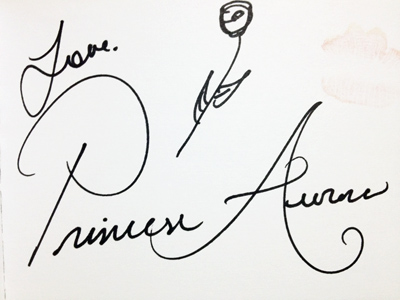 Love,
Princess Aurora